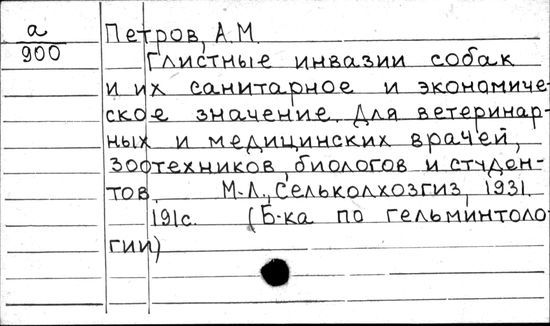 а
900
Петров, А.М.
Глистные инвазии собак
и их санитарное и экономиче-
ское значение. Для ветеринар-
ных и медицинских врачей,
зоотехников, биологов и студен-
тов. М-Л., Сельколхозгиз, 1931.
191с. (Б-ка по гельминтоло-
гии)